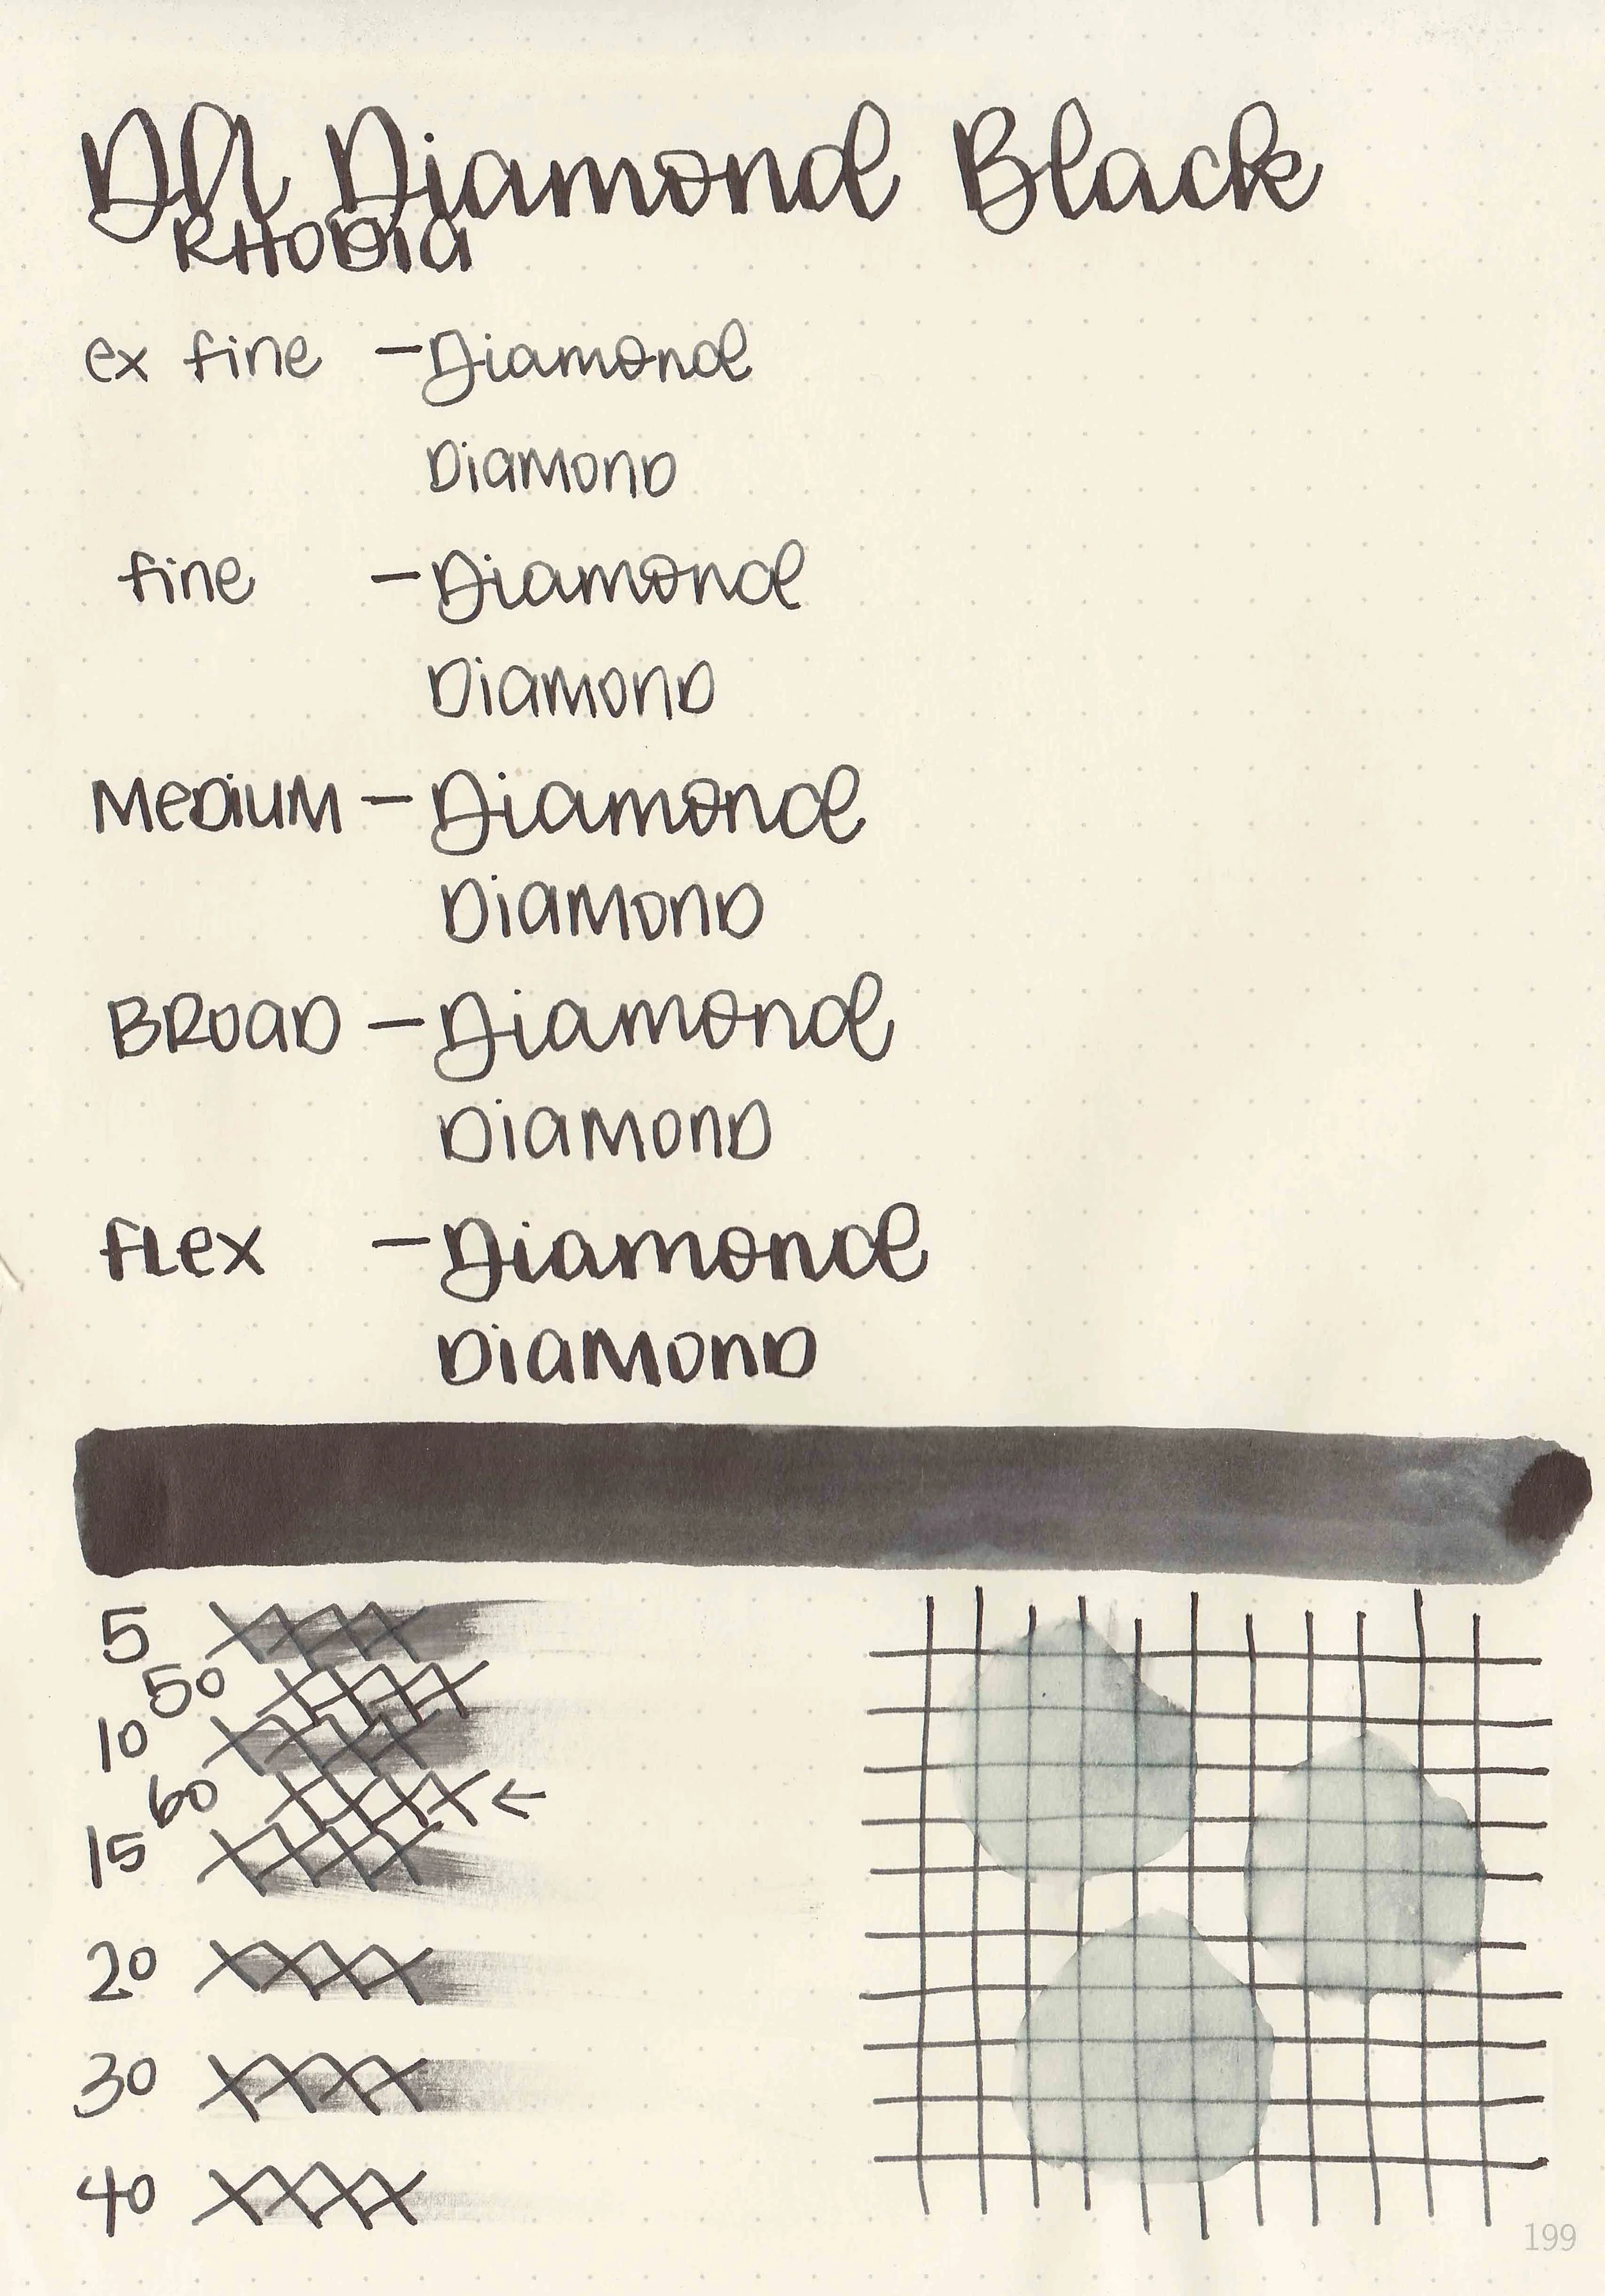 DA Diamond Black
RHODIA
ex fine - Diamond
Diamond
fine - Diamond
Diamond
Medium - Diamond
Diamond
Broad - Diamond
Diamond
flex - Diamond
Diamond
5
50
10
60 ←
15
20
30
40
199